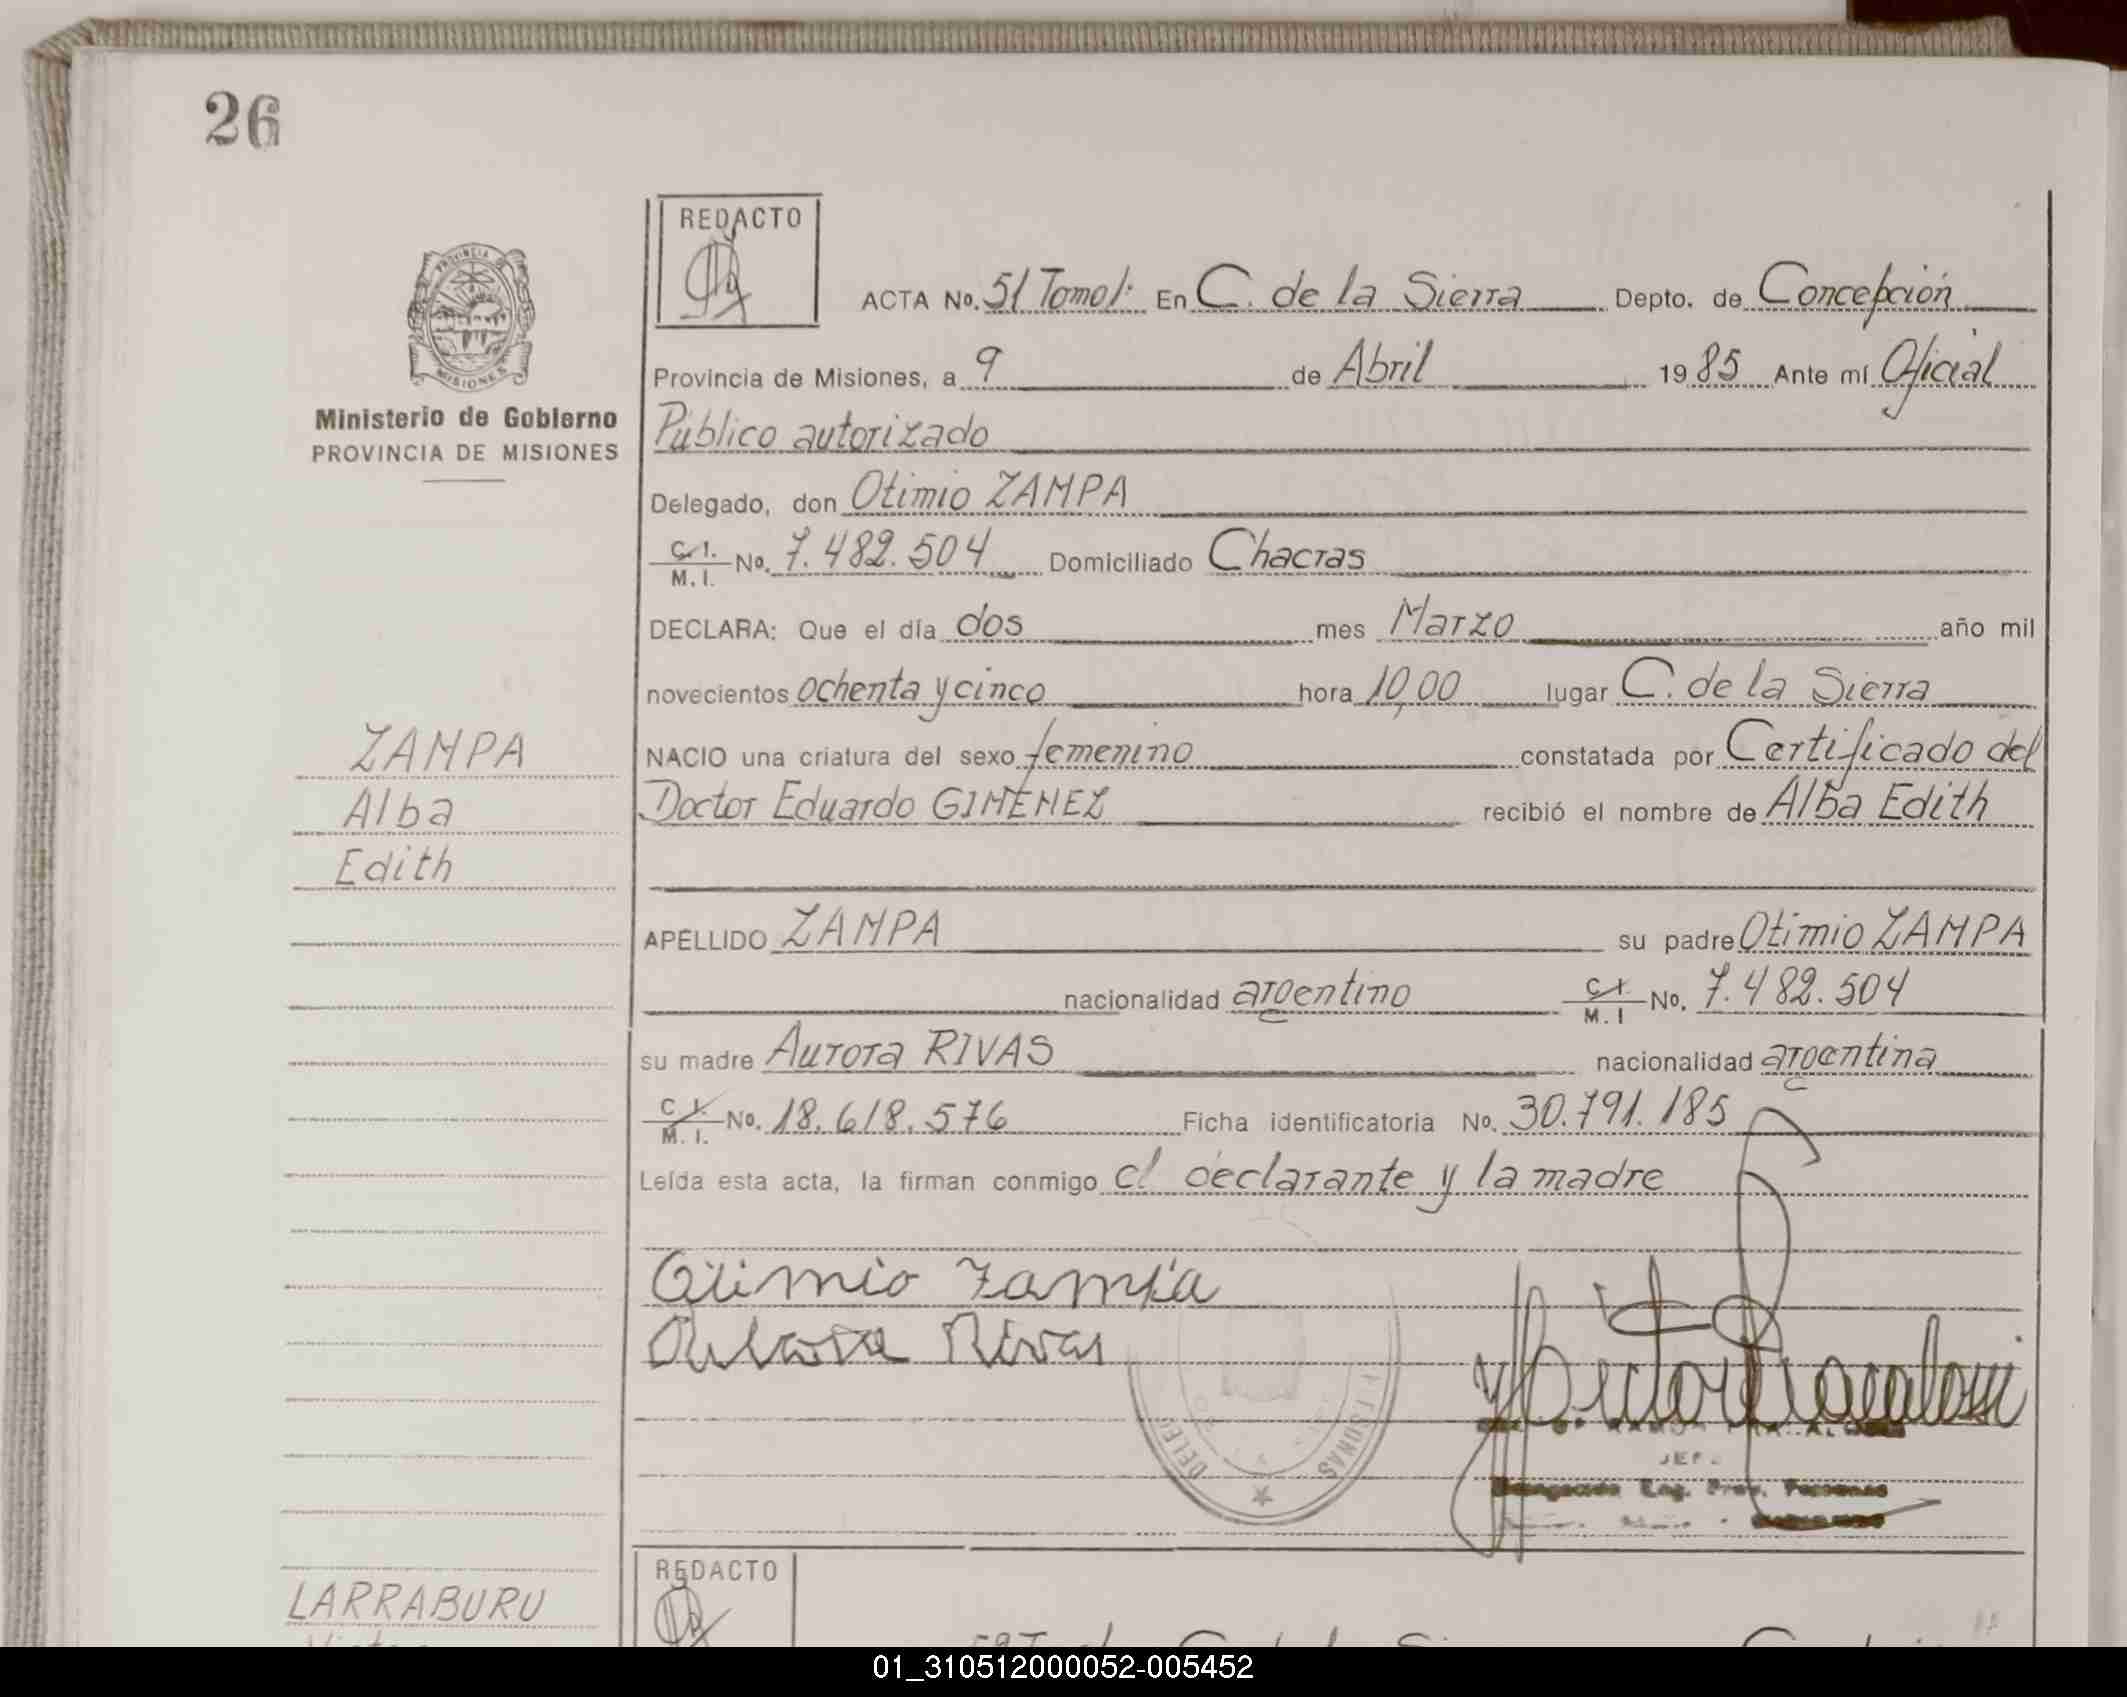 26
REDACTO
PROVINCIA DE
MISIONES
ACTA No. 51 Tomo I: En C. de la Sierra Depto. de Concepción
Provincia de Misiones, a 9 de Abril 1985 Ante mí Oficial
Ministerio de Gobierno
PROVINCIA DE MISIONES
Público autorizado
Delegado, don Otimio ZAMPA
C.I. M.I. No. 7.482.504 Domiciliado Chacras
DECLARA: Que el día dos mes Marzo año mil
novecientos ochenta y cinco hora 10,00 lugar C. de la Sierra
ZAMPA
NACIO una criatura del sexo femenino constatada por Certificado del
Alba
Doctor Eduardo GIMENEZ recibió el nombre de Alba Edith
Edith
APELLIDO ZAMPA su padre Otimio ZAMPA
nacionalidad argentino C.I. M.I No. 7.482.504
su madre Aurora RIVAS nacionalidad argentina
C.I. M.I. No. 18.618.576 Ficha identificatoria No. 30.791.185
Leída esta acta, la firman conmigo el declarante y la madre
Otimio Zampa
Aurora Rivas
DELEG
PERSONAS
JEF
Reg. Prov. Personas
REDACTO
LARRABURU
01_310512000052-005452